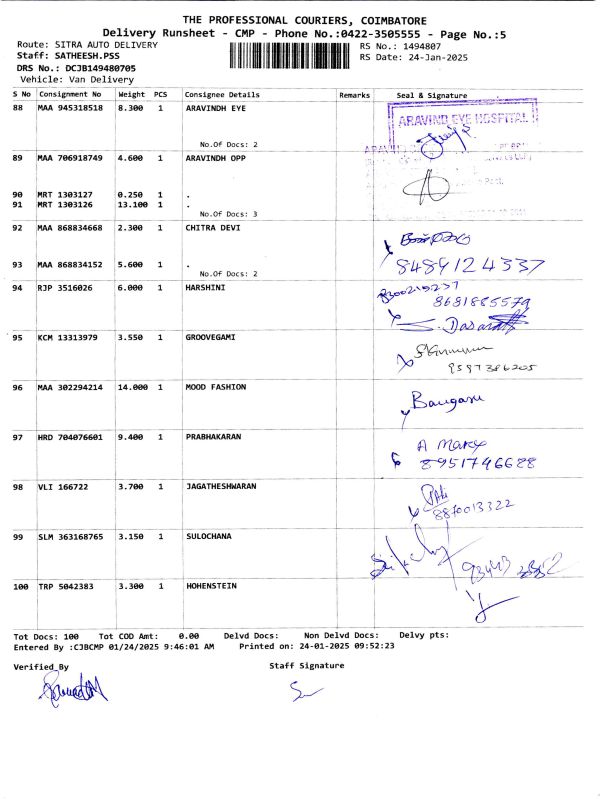 THE PROFESSIONAL COURIERS, COIMBATORE
Delivery Runsheet - CMP - Phone No.:0422-3505555 - Page No.:5
Route: SITRA AUTO DELIVERY
RS No.: 1494807
Staff: SATHEESH.PSS
RS Date: 24-Jan-2025
DRS No.: DCJB149480705
Vehicle: Van Delivery
S No Consignment No Weight PCS Consignee Details Remarks Seal & Signature
88 MAA 945318518 8.300 1 ARAVINDH EYE
ARAVIND EYE HOSPITAL
No.Of Docs: 2
89 MAA 706918749 4.600 1 ARAVINDH OPP
90 MRT 1303127 0.250 1 .
91 MRT 1303126 13.100 1 .
No.Of Docs: 3
92 MAA 868834668 2.300 1 CHITRA DEVI
93 MAA 868834152 5.600 1 .
8489124337
No.Of Docs: 2
94 RJP 3516026 6.000 1 HARSHINI
8681885579
95 KCM 13313979 3.550 1 GROOVEGAMI
9597386205
96 MAA 302294214 14.000 1 MOOD FASHION
97 HRD 704076601 9.400 1 PRABHAKARAN
A Mary
8951746688
98 VLI 166722 3.700 1 JAGATHESHWARAN
8870013322
99 SLM 363168765 3.150 1 SULOCHANA
100 TRP 5042383 3.300 1 HOHENSTEIN
Tot Docs: 100 Tot COD Amt: 0.00 Delvd Docs: Non Delvd Docs: Delvy pts:
Entered By :CJBCMP 01/24/2025 9:46:01 AM Printed on: 24-01-2025 09:52:23
Verified By
Staff Signature